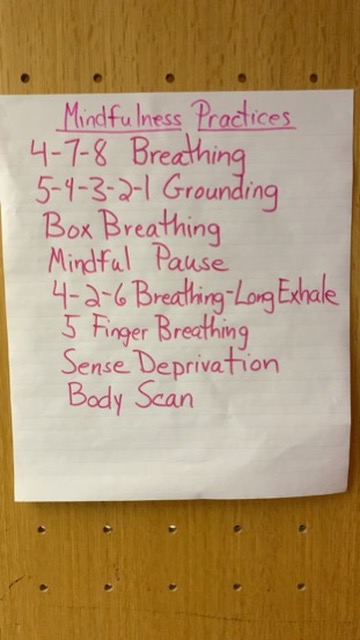 Mindfulness Practices
4-7-8 Breathing
5-4-3-2-1 Grounding
Box Breathing
Mindful Pause
4-2-6 Breathing-Long Exhale
5 Finger Breathing
Sense Deprivation
Body Scan